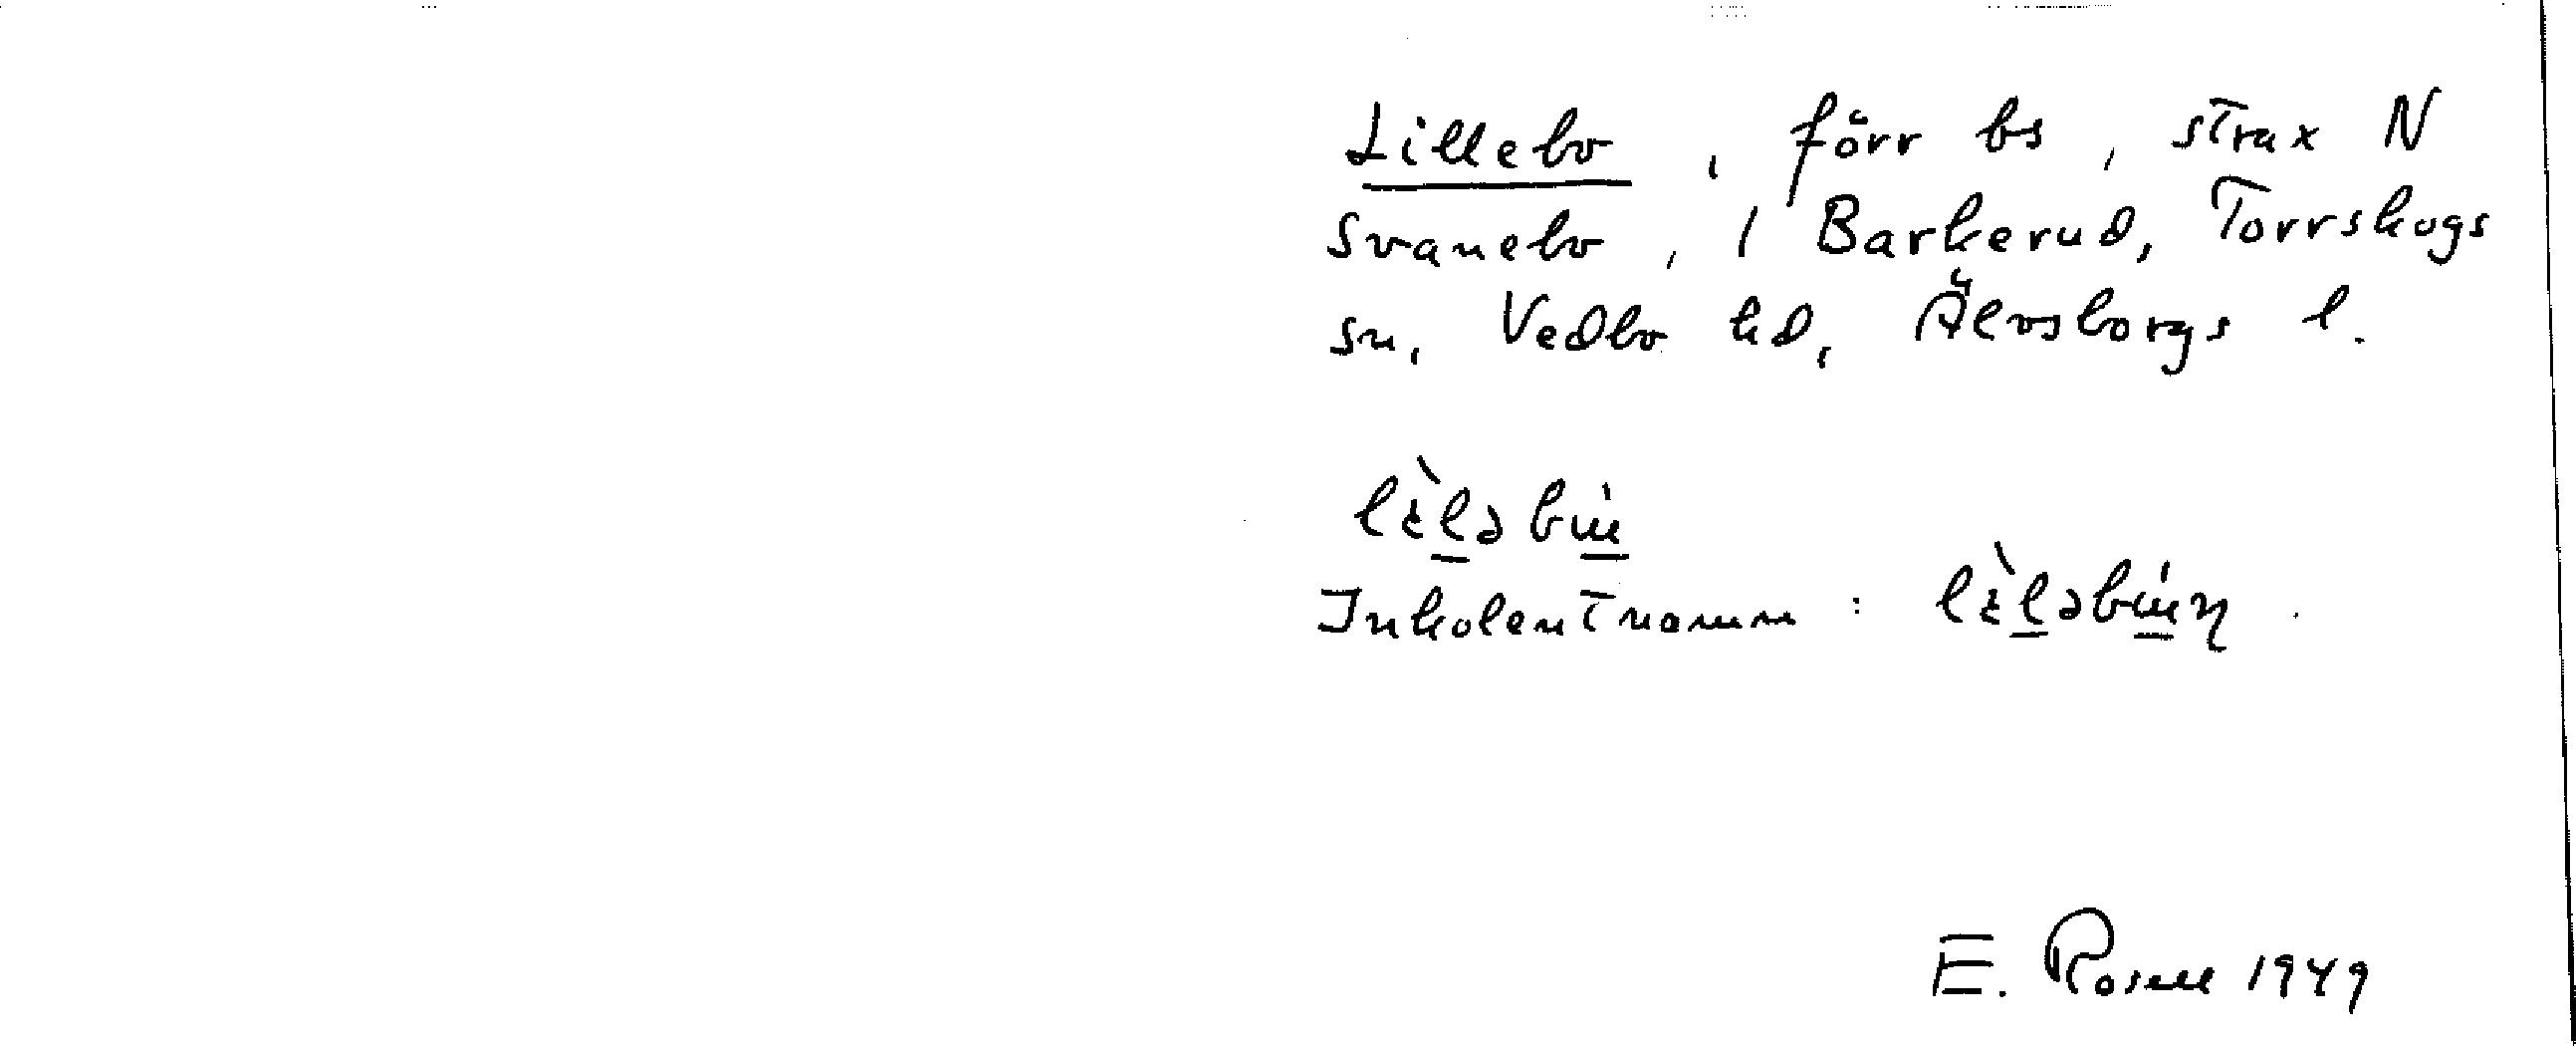 Lillebo, förr bs, strax N
Svanebo, i Barkerud, Torrskogs
sn, Vedbo hd, Älvsborgs l.
Inkolentnamn:
E. Rosell 1949